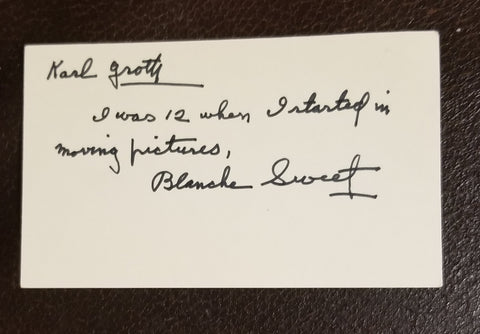 Karl Groth
I was 12 when I started in
moving pictures,
Blanche Sweet